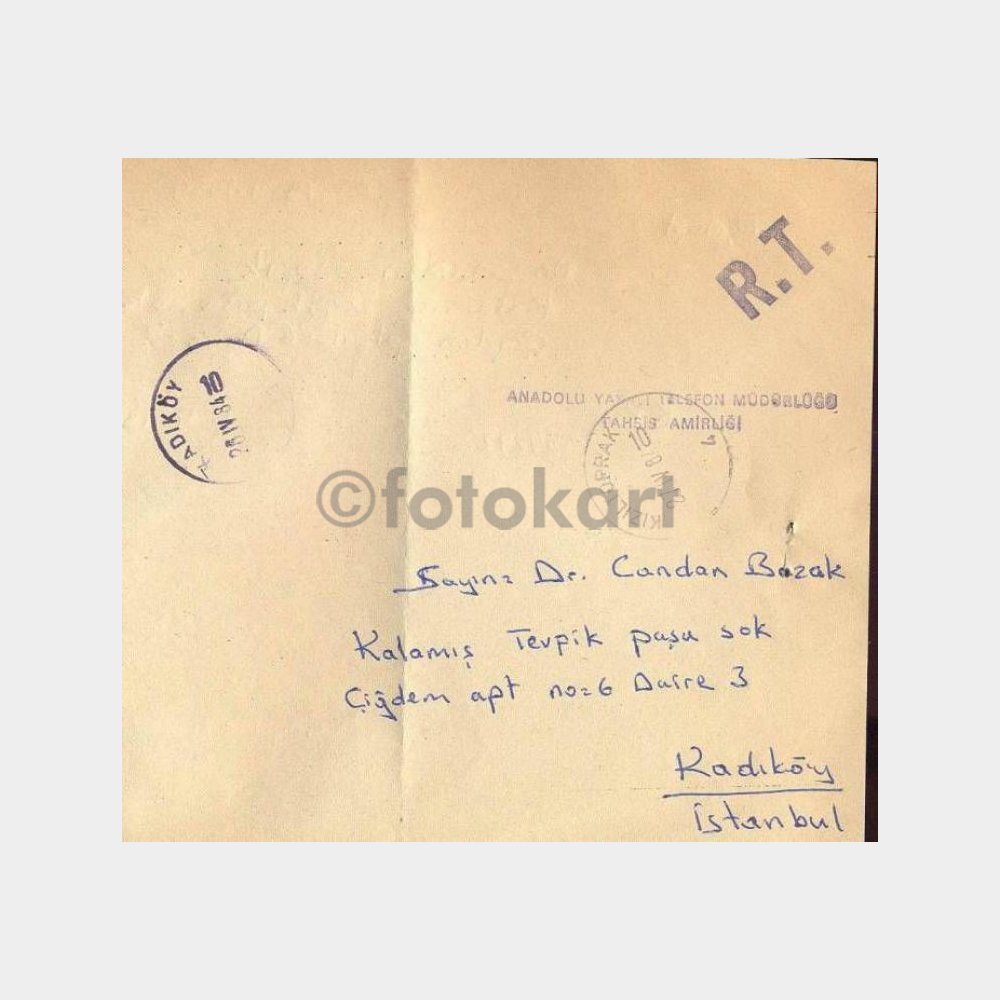 R.T.
KADIKÖY
28 IV 84 10
ANADOLU TELEFON MÜDÜRLÜĞÜ
TAHSİS AMİRLİĞİ
10
©fotokart
Sayın: Dr. Candan Bazak
Kalamış Tevpik paşa sok
Çiğdem apt no=6 Daire 3
Kadıköy
istanbul